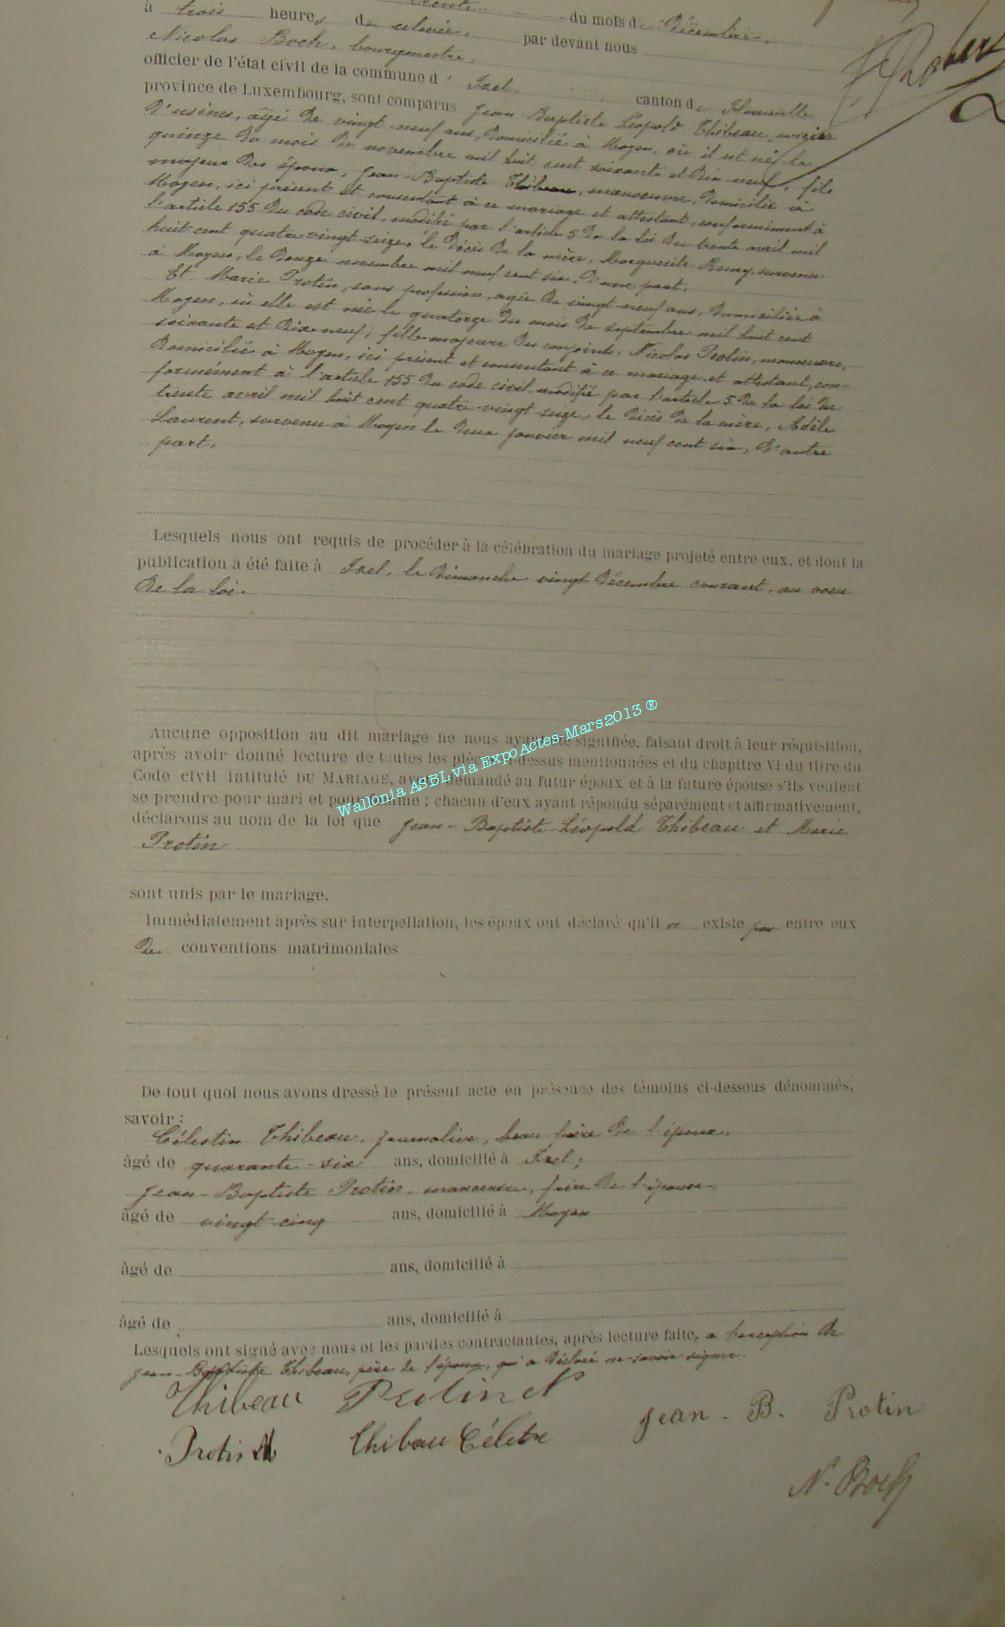 trente du mois de Décembre,
à trois heures de relevée, par devant nous
Nicolas Boch, bourgmestre,
officier de l'état civil de la commune d' Izel, canton de Florenville
province de Luxembourg, sont comparus Jean-Baptiste Léopold Thibeau, ouvrier
d'usines, âgé de vingt-neuf ans, domicilié à Moyen, où il est né le
quinze du mois de novembre mil huit cent soixante et dix-neuf, fils
majeur des époux, Jean-Baptiste Thibeau, manoeuvre, domicilié à
Moyen, ici présent et consentant à ce mariage et attestant, conformément à
l'article 155 du code civil, modifié par l'article 5 de la loi du trente avril mil
huit cent quatre-vingt-seize, le décès de la mère, Marguerite Remy, survenu
à Moyen, le douze novembre mil neuf cent six, d'une part.
Et Marie Protin, sans profession, âgée de vingt-neuf ans, domiciliée à
Moyen, où elle est née le quatorze du mois de septembre mil huit cent
soixante et dix-neuf, fille majeure des conjoints, Nicolas Protin, manoeuvre,
domicilié à Moyen, ici présent et consentant à ce mariage et attestant, con-
formément à l'article 155 du code civil modifié par l'article 5 de la loi du
trente avril mil huit cent quatre-vingt-seize, le décès de la mère, Adèle
Laurent, survenu à Moyen le deux janvier mil neuf cent six, d'autre
part.
Lesquels nous ont requis de procéder à la célébration du mariage projeté entre eux, et dont la
publication a été faite à Izel, le dimanche vingt décembre courant, au voeu
de la loi.
Aucune opposition au dit mariage ne nous ayant été signifiée, faisant droit à leur réquisition,
après avoir donné lecture de toutes les pièces ci-dessus mentionnées et du chapitre VI du titre du
Code civil intitulé DU MARIAGE, avons demandé au futur époux et à la future épouse s'ils veulent
se prendre pour mari et pour femme ; chacun d'eux ayant répondu séparément et affirmativement,
déclarons au nom de la loi que Jean-Baptiste-Léopold Thibeau et Marie
Protin
sont unis par le mariage.
Immédiatement après sur interpellation, les époux ont déclaré qu'il n' existe pas entre eux
de conventions matrimoniales
De tout quoi nous avons dressé le présent acte en présence des témoins ci-dessous dénommés,
savoir :
Célestin Thibeau, journalier, beau-frère de l'époux,
âgé de quarante-six ans, domicilié à Izel ;
Jean-Baptiste Protin, manoeuvre, frère de l'épouse,
âgé de vingt cinq ans, domicilié à Moyen
âgé de ans, domicilié à
âgé de ans, domicilié à
Lesquels ont signé avec nous et les parties contractantes, après lecture faite, à l'exception de
Jean-Baptiste Thibeau, père de l'époux, qui a déclaré ne savoir signer.
Thibeau Protin N
Protin M Thibau Célestin Jean - B. Protin
N. Boch
Wallonia ASBL via Expo Actes-Mars2013 ®